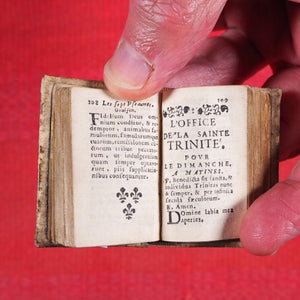 108 Les sept Pseaumes.
Oraison.
Fidelium Deus om-
nium conditor, & re-
demptor, animabus fa-
mulorum, famularumque
tuarum, remissionem cun-
ctorum tribue peccato-
rum, ut indulgentiam
quam semper optave-
runt, piis supplicatio-
nibus consequantur.
109
L'OFFICE
DE LA SAINTE
TRINITE',
POUR
LE DIMANCHE,
A MATINES.
Benedicta sit sancta, &
individua Trinitas nunc
& semper, & per infinita
sæcula sæculorum.
R. Amen.
Domine labia mea
aperies.